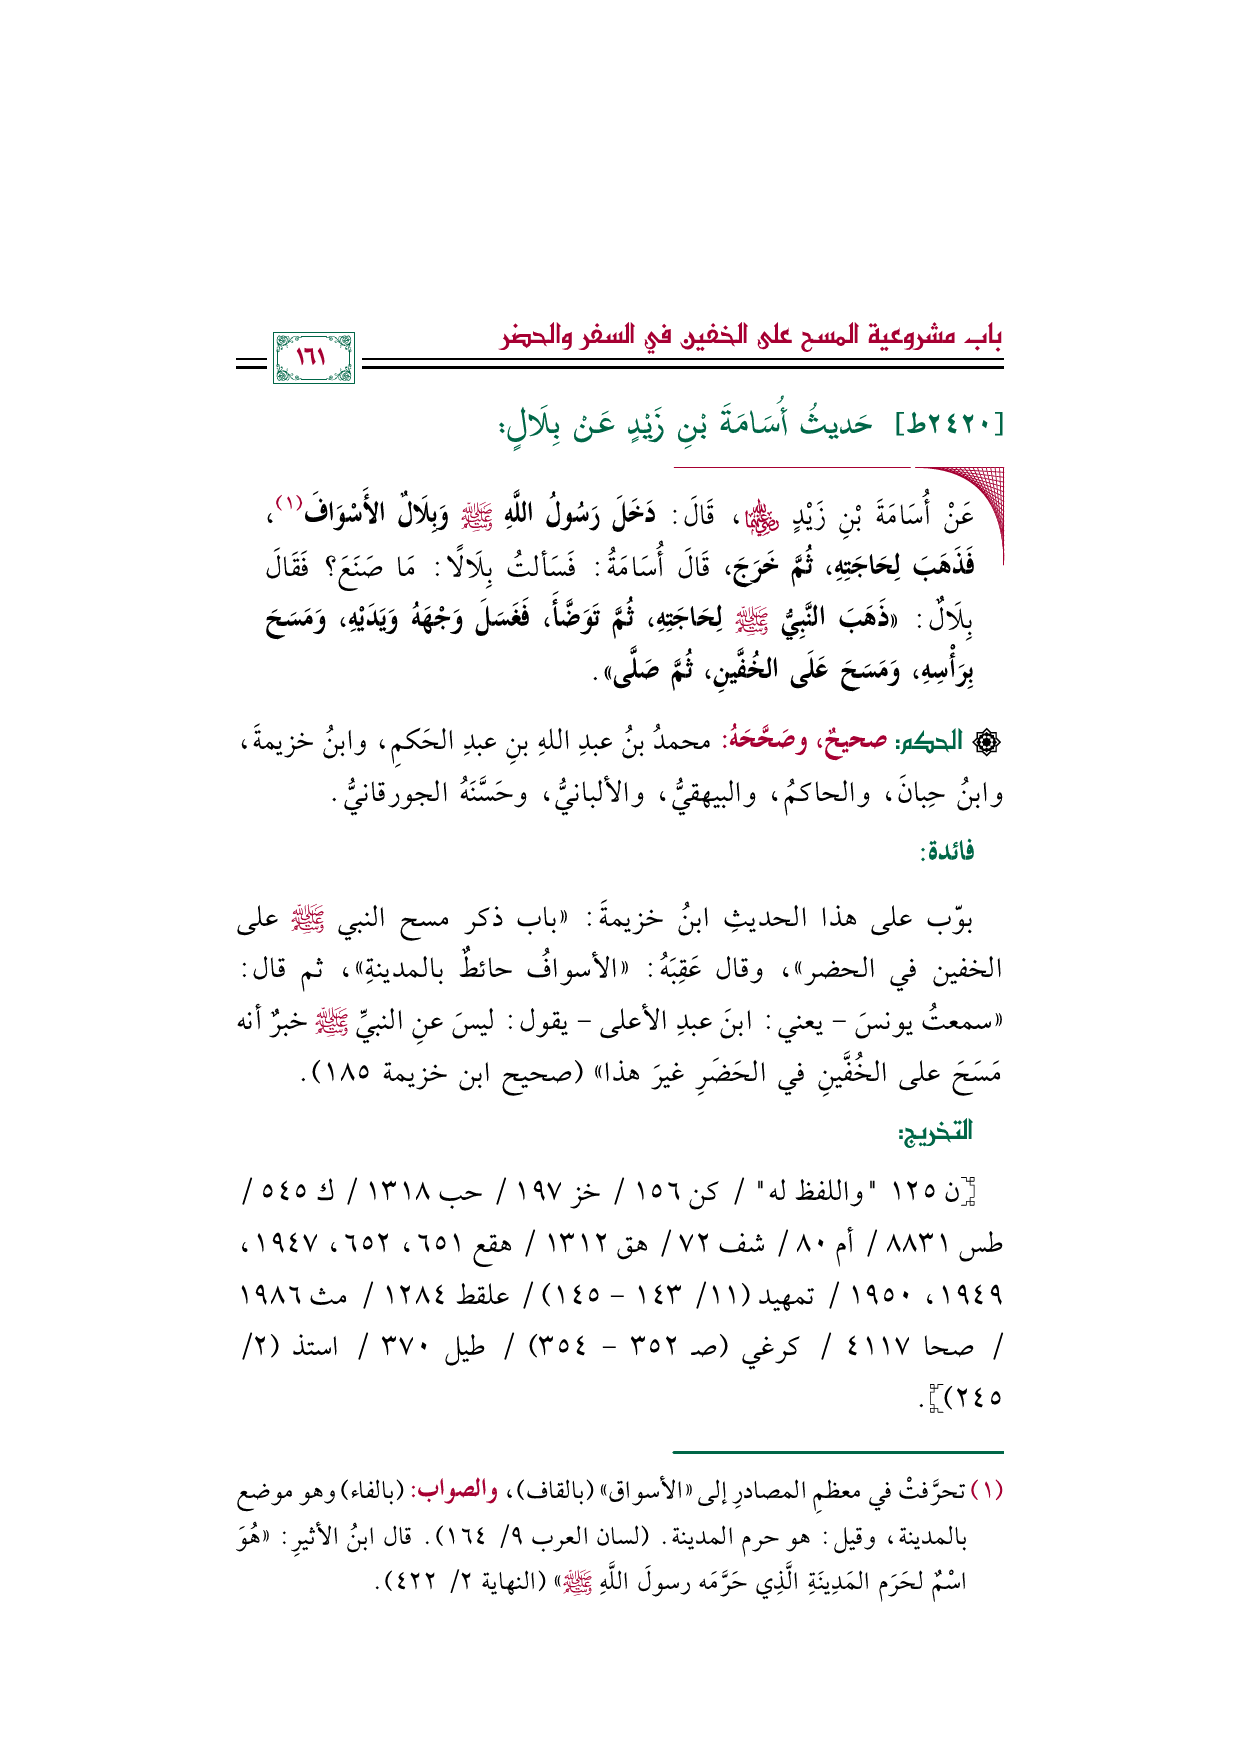 باب مشروعية المسح على الخفين في السفر والحضر
١٦١
[٢٤٢٠ط] حَديثُ أُسَامَةَ بْنِ زَيْدٍ عَنْ بِلَالٍ:
عَنْ أُسَامَةَ بْنِ زَيْدٍ رضي الله عنهما، قَالَ: دَخَلَ رَسُولُ اللَّهِ ﷺ وَبِلَالٌ الأَسْوَافَ(١)،
فَذَهَبَ لِحَاجَتِهِ، ثُمَّ خَرَجَ، قَالَ أُسَامَةُ: فَسَألتُ بِلَالًا: مَا صَنَعَ؟ فَقَالَ
بِلَالٌ: «ذَهَبَ النَّبِيُّ ﷺ لِحَاجَتِهِ، ثُمَّ تَوَضَّأَ، فَغَسَلَ وَجْهَهُ وَيَدَيْهِ، وَمَسَحَ
بِرَأْسِهِ، وَمَسَحَ عَلَى الخُفَّينِ، ثُمَّ صَلَّى».
الحكم: صحيحٌ، وصَحَّحَهُ: محمدُ بنُ عبدِ اللهِ بنِ عبدِ الحَكمِ، وابنُ خزيمةَ،
وابنُ حِبانَ، والحاكمُ، والبيهقيُّ، والألبانيُّ، وحَسَّنَهُ الجورقانيُّ.
فائدة:
بوّب على هذا الحديثِ ابنُ خزيمةَ: «باب ذكر مسح النبي ﷺ على
الخفين في الحضر»، وقال عَقِبَهُ: «الأسوافُ حائطٌ بالمدينةِ»، ثم قال:
«سمعتُ يونسَ – يعني: ابنَ عبدِ الأعلى – يقول: ليسَ عنِ النبيِّ ﷺ خبرٌ أنه
مَسَحَ على الخُفَّينِ في الحَضَرِ غيرَ هذا» (صحيح ابن خزيمة ١٨٥).
التخريج:
[ن ١٢٥ "واللفظ له" / كن ١٥٦ / خز ١٩٧ / حب ١٣١٨ / ك ٥٤٥ /
طس ٨٨٣١ / أم ٨٠ / شف ٧٢ / هق ١٣١٢ / هقع ٦٥١، ٦٥٢، ١٩٤٧،
١٩٤٩، ١٩٥٠ / تمهيد (١١/ ١٤٣ – ١٤٥) / علقط ١٢٨٤ / مث ١٩٨٦
/ صحا ٤١١٧ / كرغي (صـ ٣٥٢ – ٣٥٤) / طيل ٣٧٠ / استذ (٢/
٢٤٥)].
(١) تحرَّفتْ في معظمِ المصادرِ إلى «الأسواق» (بالقاف)، والصواب: (بالفاء) وهو موضع
بالمدينة، وقيل: هو حرم المدينة. (لسان العرب ٩/ ١٦٤). قال ابنُ الأثيرِ: «هُوَ
اسْمٌ لحَرَم المَدِينَةِ الَّذِي حَرَّمَه رسولَ اللَّهِ ﷺ» (النهاية ٢/ ٤٢٢).